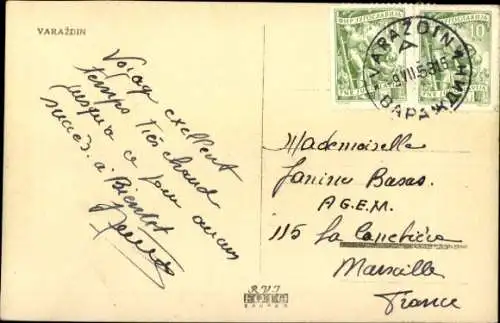 VARAŽDIN
Voyage exellent
temps très chaud
jusqu'a ce jour aucun
succès. a Bientot
ФНР ЈУГОСЛАВИЈА
10
FNR JUGOSLAVIJA
VARAŽDIN
A
9.VII.53.16
ВАРАЖДИН
Mademoiselle
Janine Basas
A.G.E.M.
115 La Canebière
Marseille
France
RVI
FOTO
ZAGREB